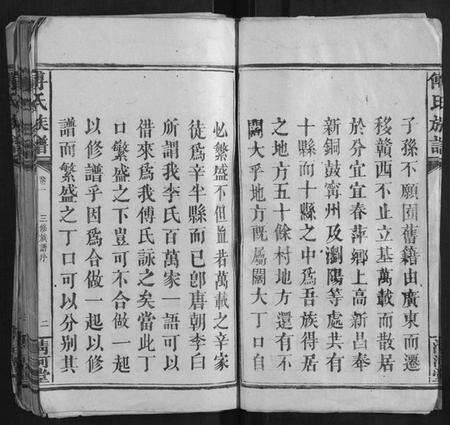 傅氏族譜
子孫不願囿舊籍由廣東而遷
移贛西不止立基萬載而散居
於分宜宜春萍鄉上高新昌奉
新銅鼓甯州及瀏陽等處共有
十縣而十縣之中為吾族得居
之地方五十餘村地方還有不
闊大乎地方既屬闊大丁口自
必繁盛不但與萬載之辛家
徒為辛半縣而已卽唐朝李白
所謂我李氏百萬家一語可以
借來為我傅氏詠之矣當此丁
口繁盛之下豈可不合做一起
以修譜乎因為合做一起以修
譜而繁盛之丁口可以分別其
傅氏族譜
三修族譜序
二